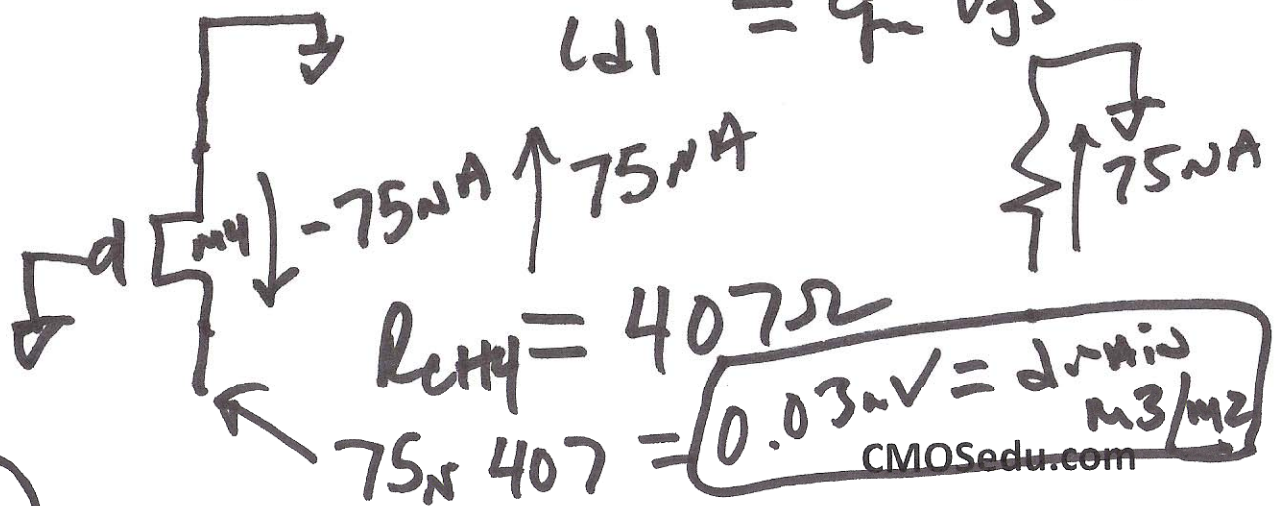 id1 = gm vgs
-75nA 75nA 75nA
M4
RCH4 = 407Ω
75n 407 = 0.03mV = drain
M3/M2
CMOSedu.com